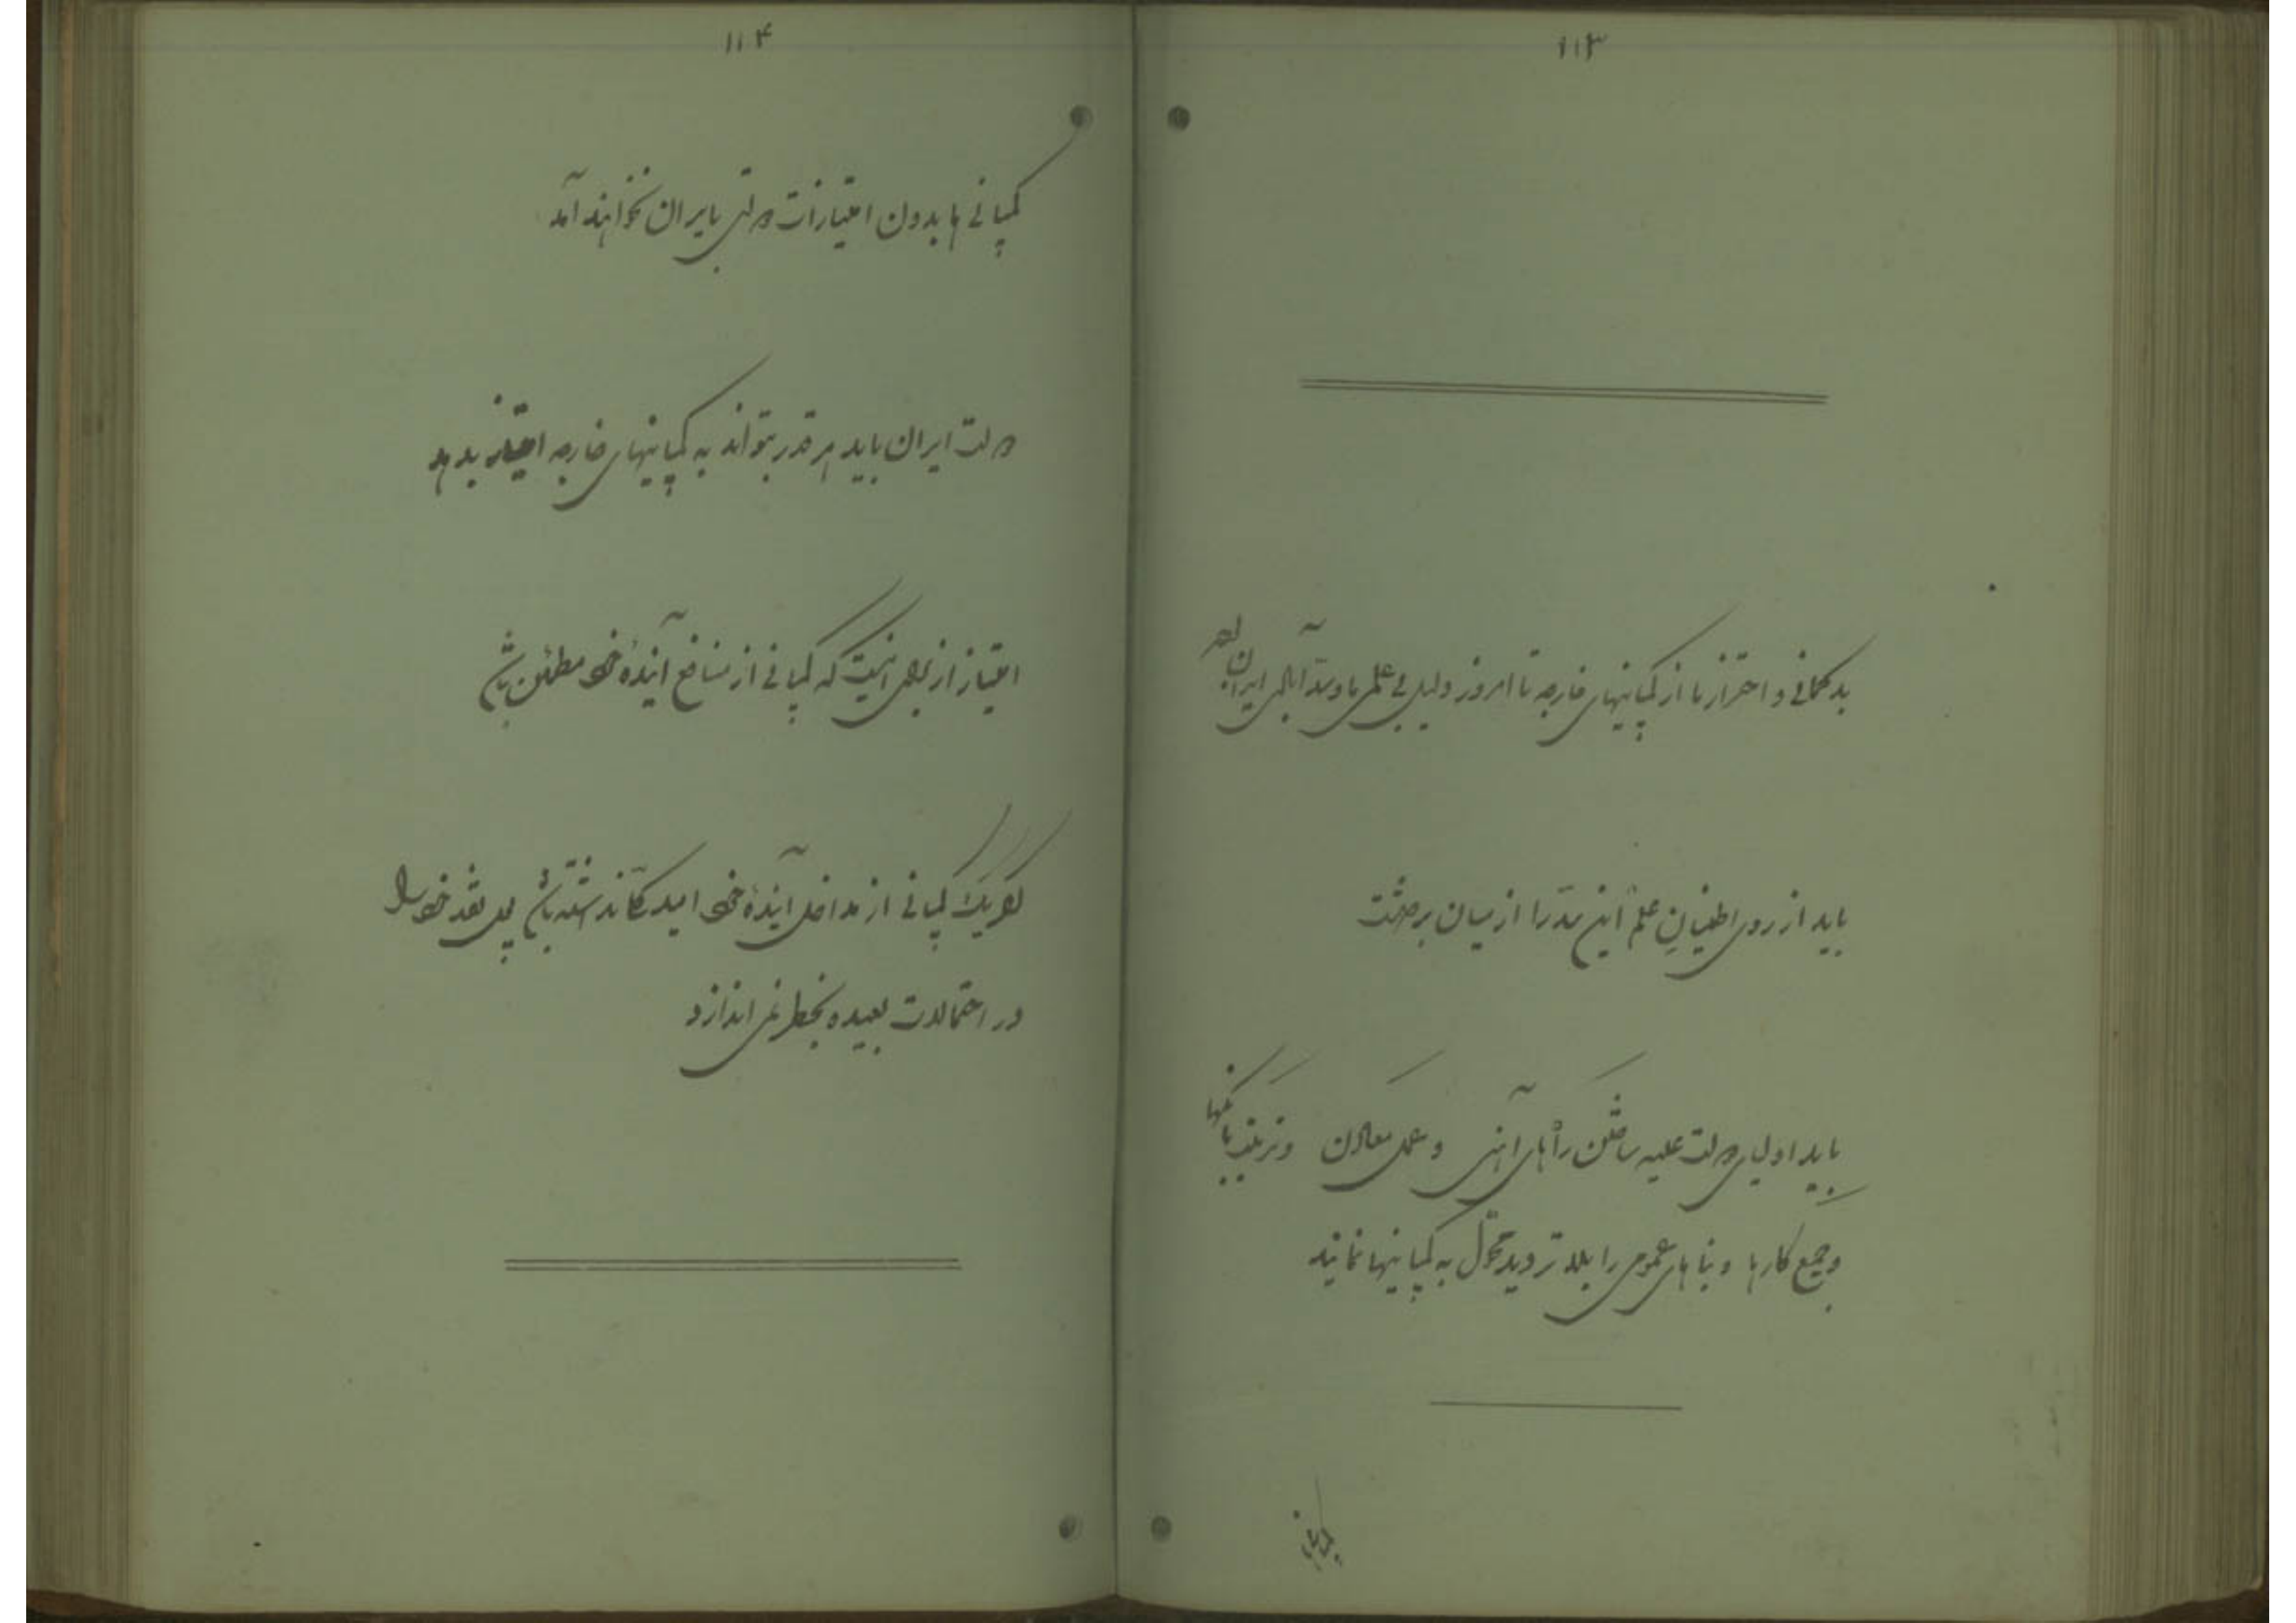 ۱۱۳
بدگمانی و احتراز ما از کمپانیهای خارجه تا امروز دلیل بی علمی ما و سد آبادی ایران بوده
باید از روی اطمینان علم این سد را از میان برداشت
باید اولیای دولت علیه ساختن راههای آهنی و عمل معادن و ترتیب بانکها
و جمیع کارها و بناهای عمومی را بلا تردید محول به کمپانیها نمایند
کمپانی
۱۱۴
کمپانی ها بدون امتیازات دولتی بایران نخواهند آمد
دولت ایران باید هر قدر بتواند به کمپانیهای خارجه امتیاز بدهد
امتیاز از برای اینست که کمپانی از منافع آیندهٔ خود مطمئن باشد
اگر یک کمپانی از مداخل آیندهٔ خود امید کلی نداشته باشد پول نقد خود را
در احتمالات بعیده بخطر نمی اندازد